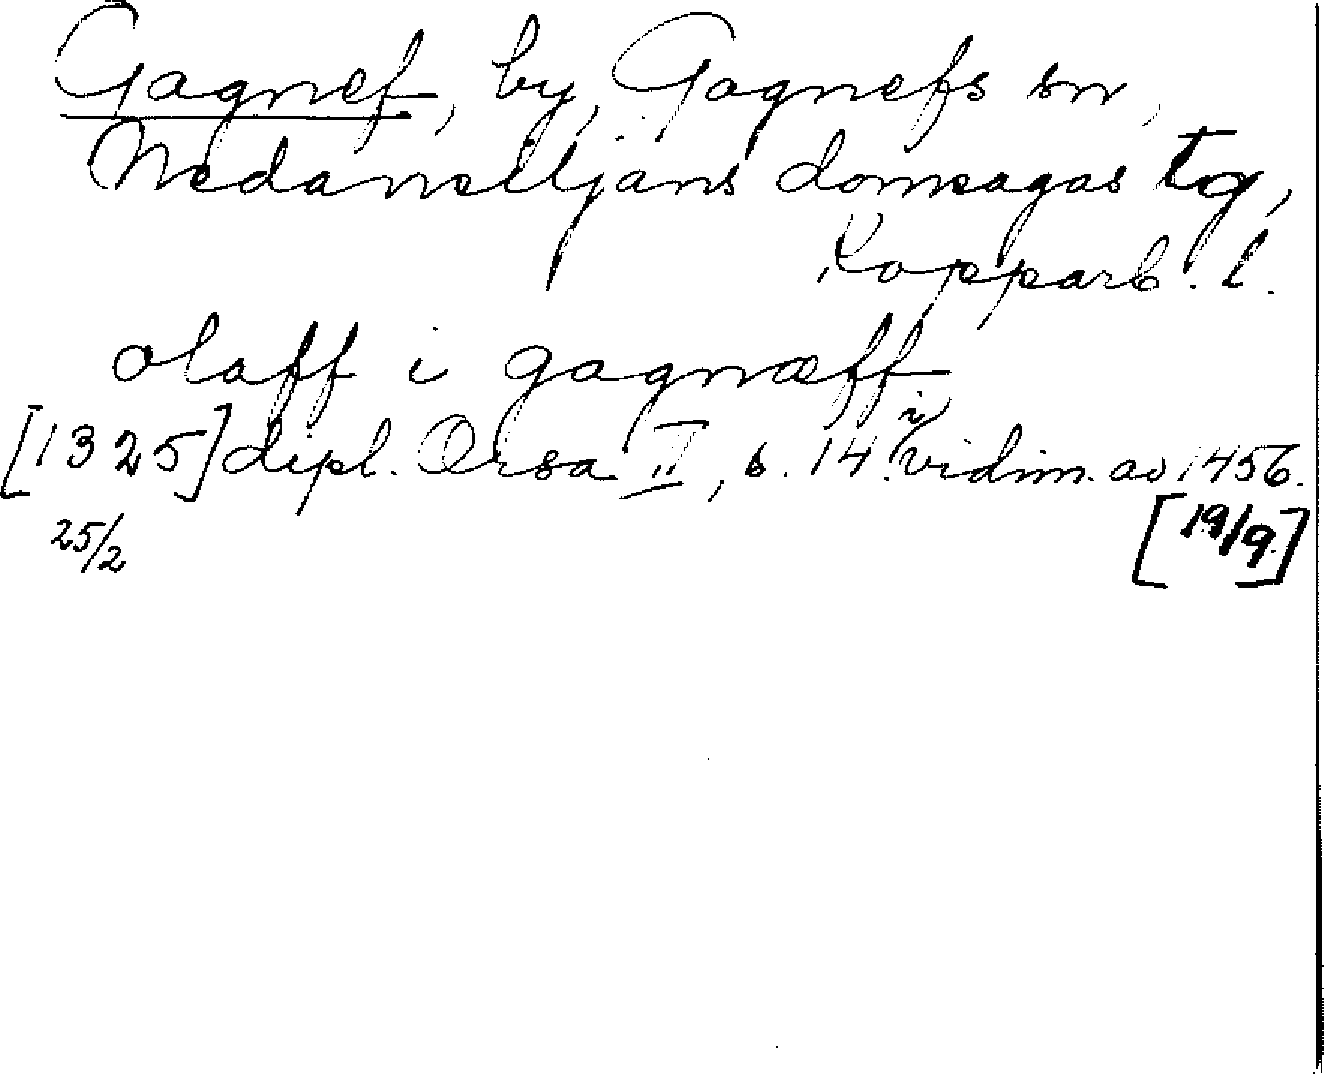 Gagnef, by, Gagnefs sn,
Nedansiljans domsagas tg,
Kopparb. l.
olaff i gagnæff
[1325] dipl. Orsa II, s. 14. i vidim. av 1456.
25/2 [19/9]